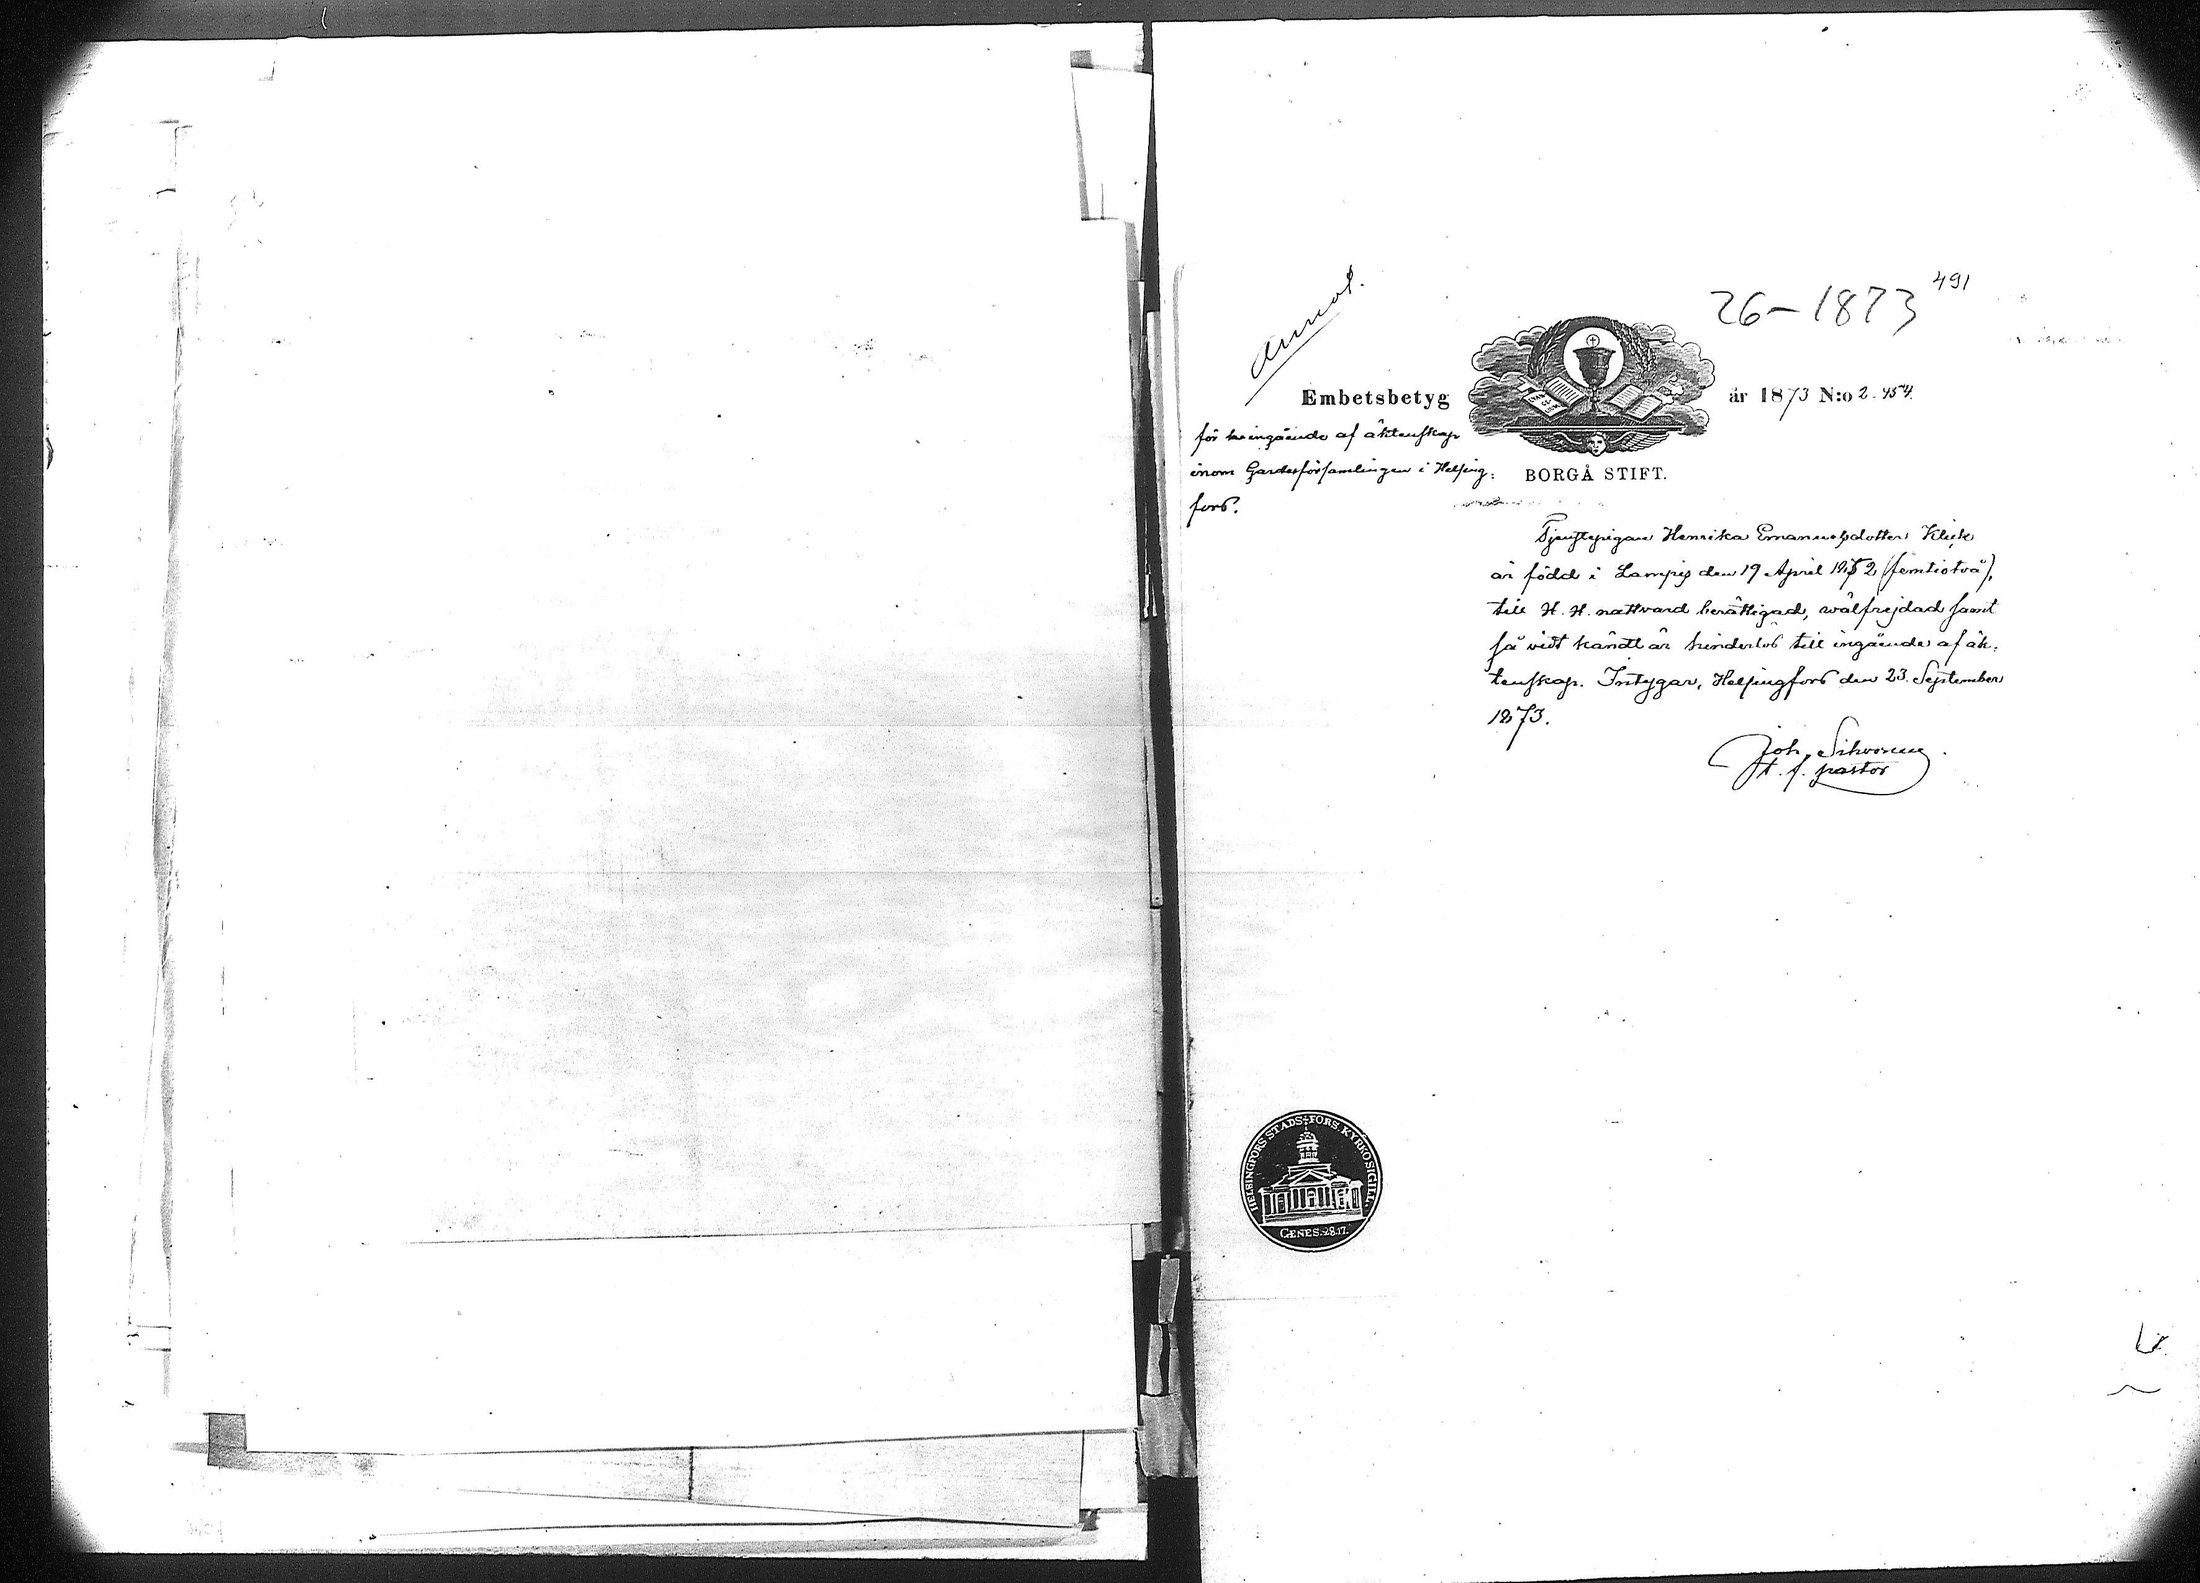 491
26-1873
Annot.
Embetsbetyg år 1873 N:o 2.454.
för ingående af äktenskap
inom Gardesförsamlingen i Helsing:
fors.
BORGÅ STIFT.
Tjenstepigan Henrika Emanuelsdotter
är född i Lampis den 19 April 1852 (femtiotvå),
till H. H. nattvard berättigad, wälfrejdad samt
så vidt kändt är hinderlös till ingående af äk:
tenskap. Intygar, Helsingfors den 23. September
1873.
Joh. Sihvonen
t. f. pastor
HELSINGFORS STADS FÖRS. KYRKOSIGILL.
GENES. 28.17.